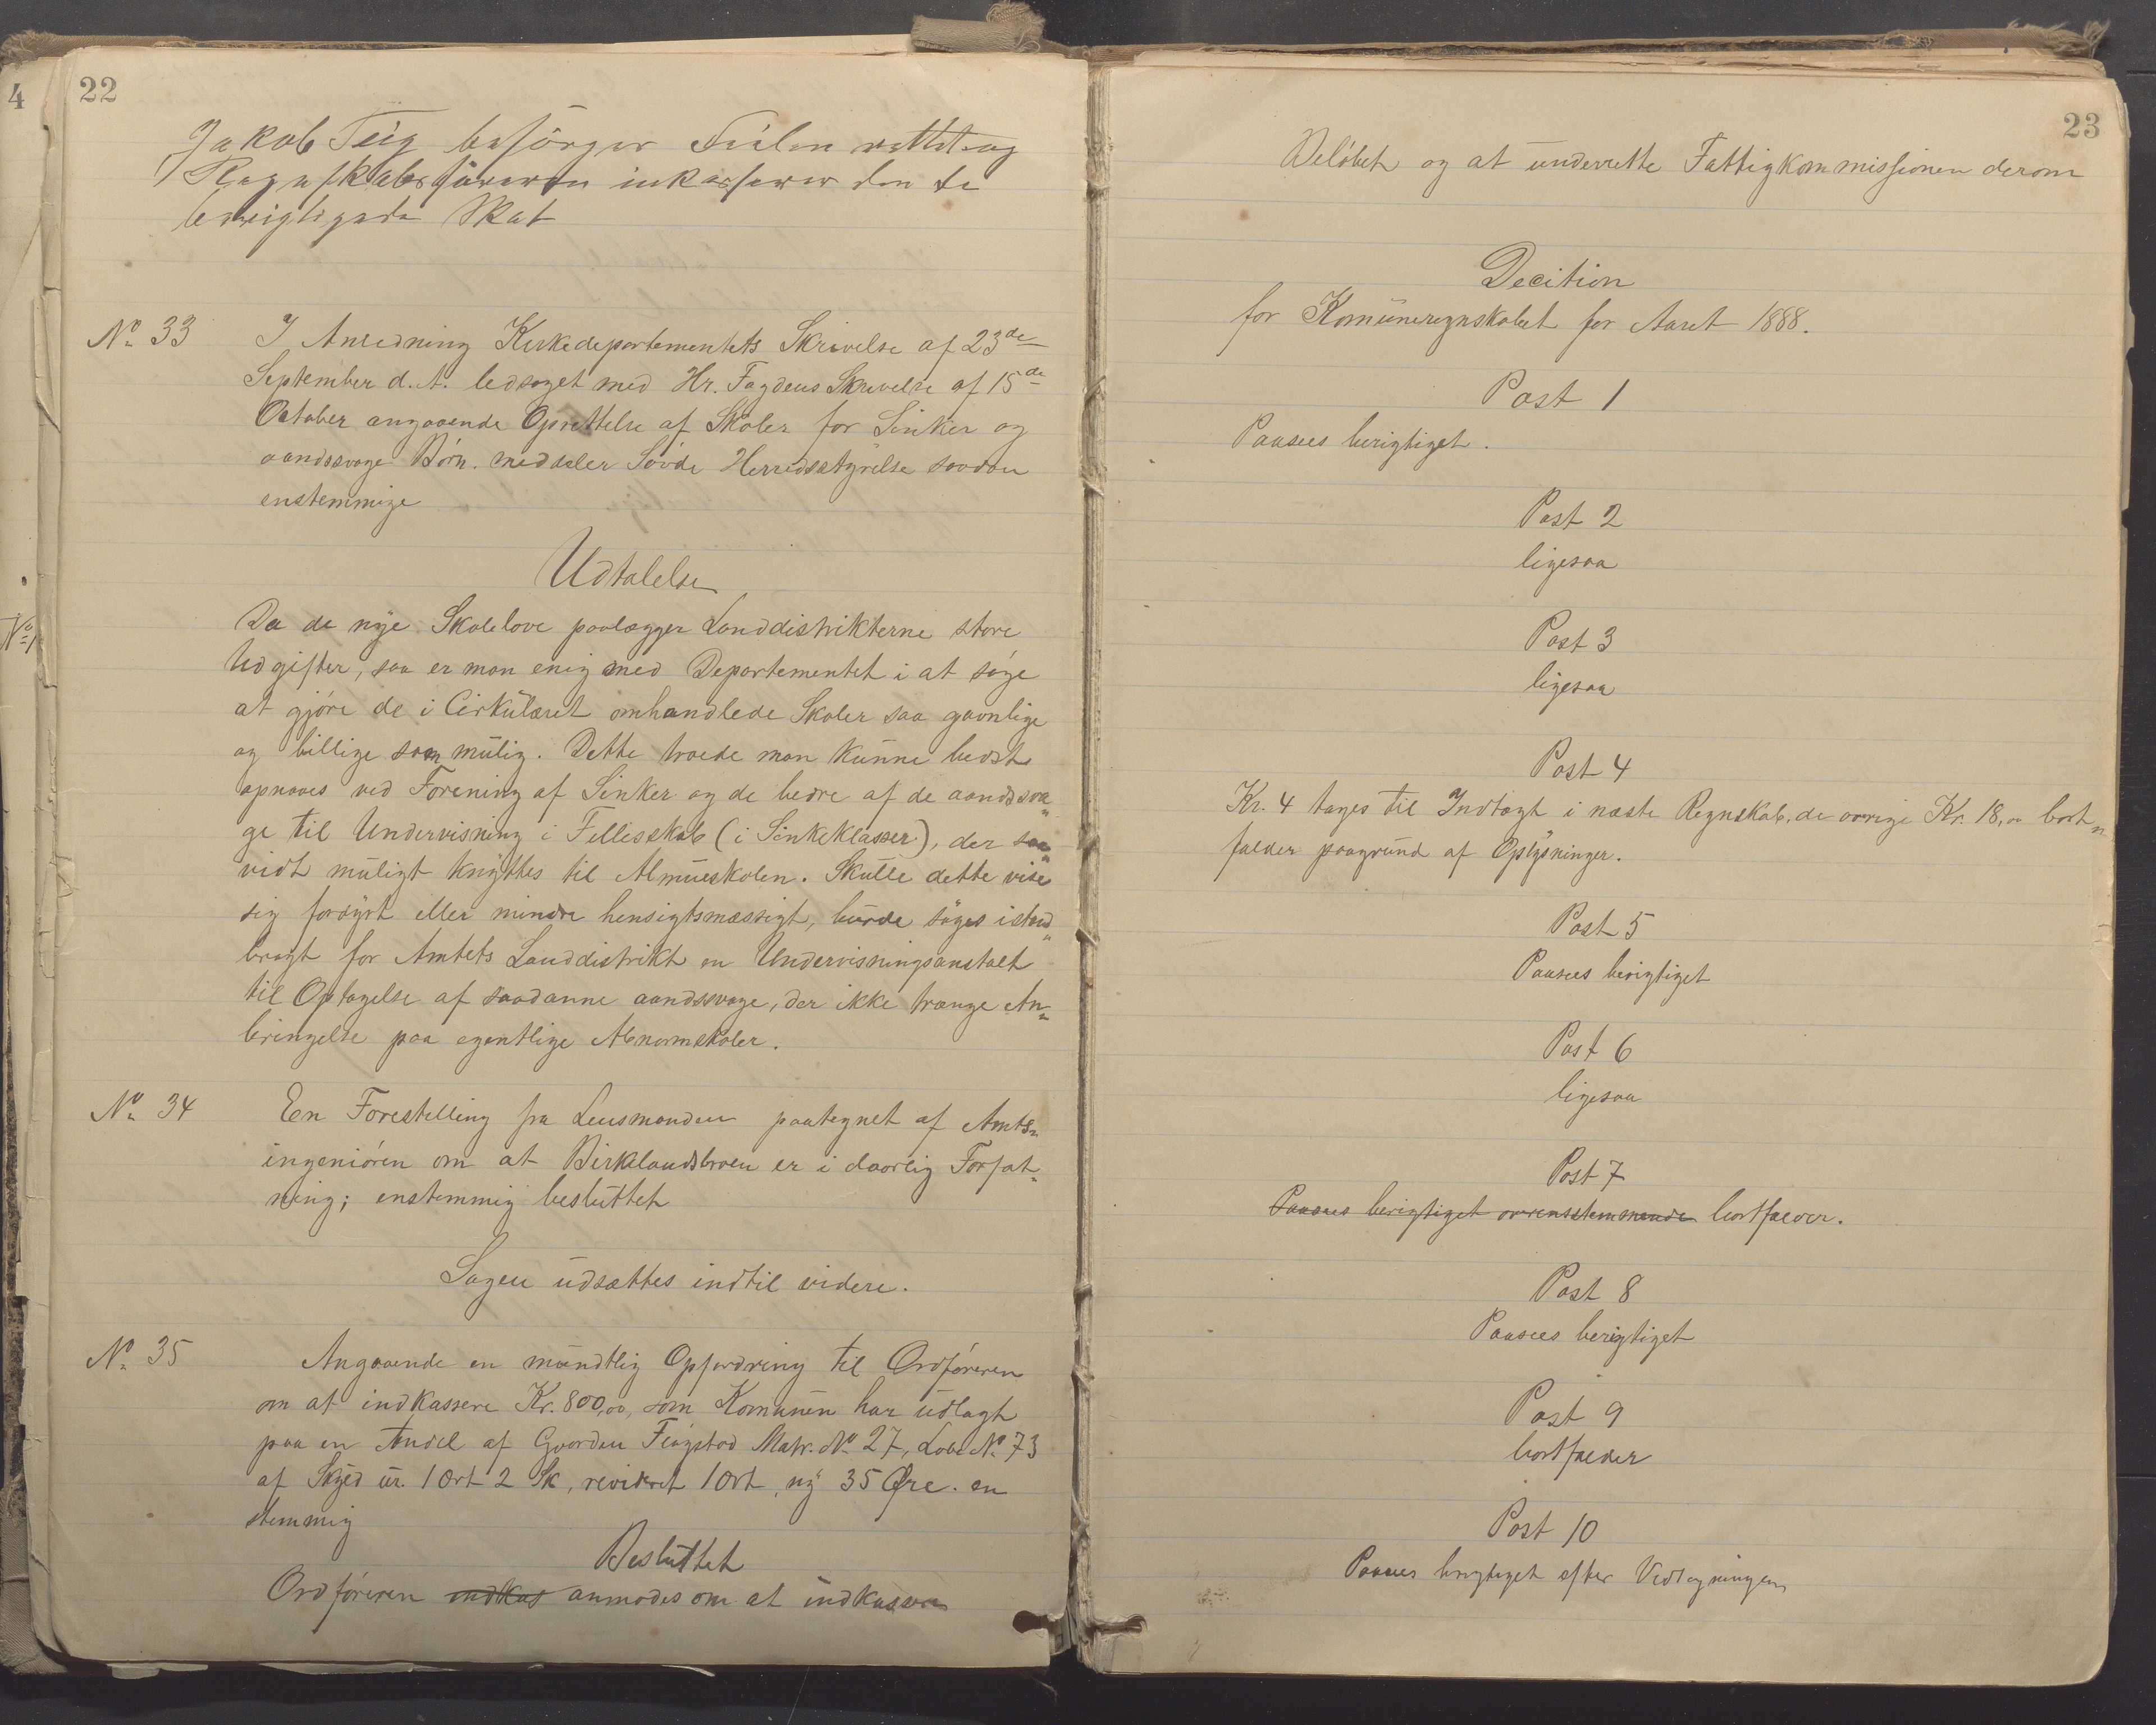 4
22
Jakob Teig besörger Feilen rettet og
Regnskabsföreren inkasserer den be
berrigtigede Skat
No. 33 I Anledning Kirkedepartementets Skrivelse af 23de
September d. A. ledsaget med Hr. Fogdens Skrivelse af 15de
October angaaende Oprettelse af Skoler for Sinker og
aandssvage Börn. meddeler Søvde Herredsstyrelse saadan
enstemmige
Udtalelse
Da de nye Skolelove paalægger Landdistrikterne store
Udgifter, saa er man enig med Departementet i at søge
at gjøre de i Cirkulæret omhandlede Skoler saa gavnlige
og billige som mulig. Dette troede man kunne bedst
opnaaes ved Forening af Sinker og de bedre af de aandssva„
ge til Undervisning i Fellesskab (i Sinkeklasser), der saa„
vidt muligt knyttes til Almueskolen. Skulle dette vise
sig fordyrt eller mindre hensigtsmæssigt, burde söges istand„
bragt for Amtets Landdistrikt en Undervisningsanstalt
til Optagelse af saadanne aandssvage, der ikke trænge An„
bringelse paa egentlige Abnormskoler.
No. 34 En Forestilling fra Lensmanden paategnet af Amts„
ingeniören om at Birklandsbroen er i daarlig Forfat„
ning; enstemmig besluttet
Sagen udsættes indtil videre.
No. 35 Angaaende en mundtlig Opfordring til Ordföreren
om at indkassere Kr. 800,00, som Komunen har udlagt
paa en Andel af Gaarden Fiogstad Matr. No. 27, Løbe No. 73
af Skyld ur. 1 Ort 2 Sk, revideret 1 Ort, ny 35 Øre. en
stemmig
Besluttet
Ordföreren indkas anmodes om at indkassere
23
Beløbet og at underrette Fattigkommissionen derom
Decition
for Komuneregnskabet for Aaret 1888.
Post 1
Paasees berigtiget.
Post 2
ligesaa
Post 3
ligesaa
Post 4
Kr. 4 tages til Indtægt i næste Regnskab, de øvrige Kr. 18,00 bort„
falder paagrund af Oplysninger.
Post 5
Paasees berigtiget
Post 6
ligesaa
Post 7
Paasees berigtiget overensstemmende bortfalder.
Post 8
Paasees berigtiget
Post 9
bortfalder
Post 10
Paasees berigtiget efter Vedtegningen